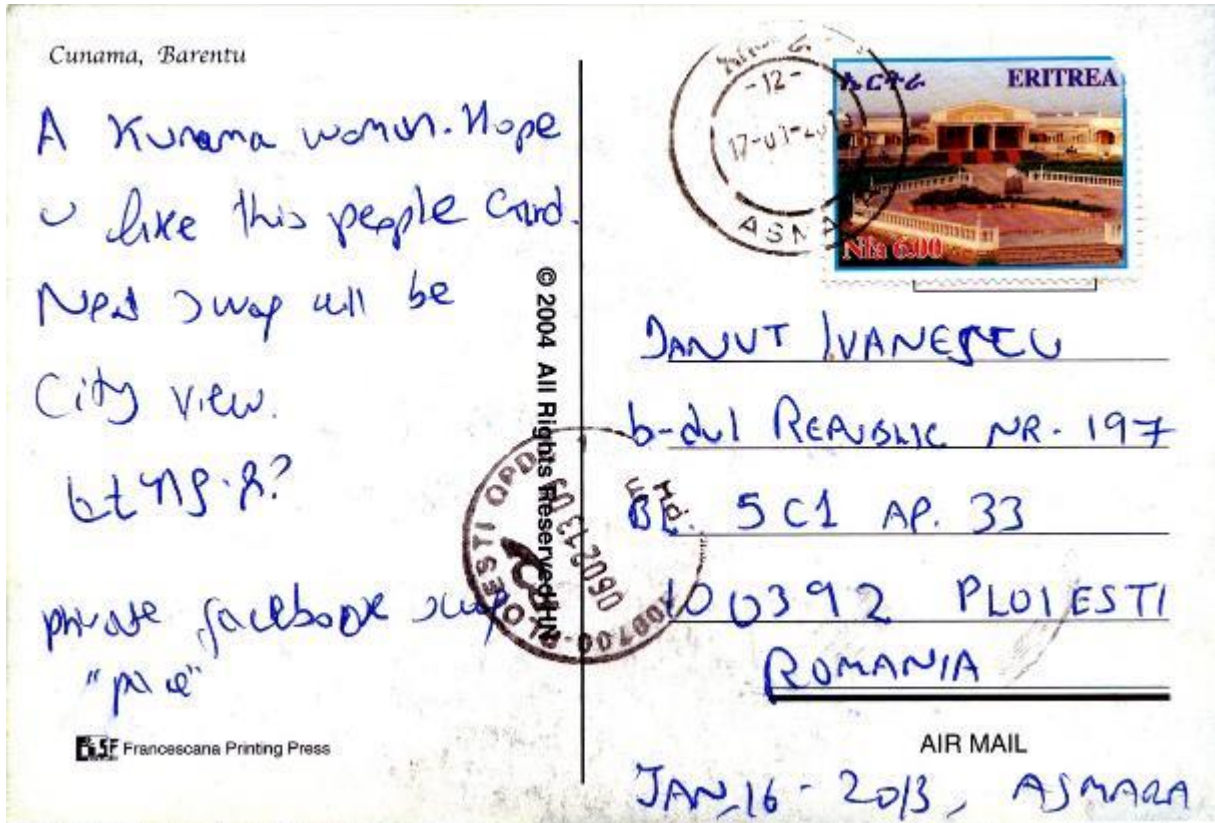 Cunama, Barentu
A Kunama woman. Hope
u like this people Card.
Next swap will be
City view.
private facebook swap
Francescana Printing Press
© 2004 All Rights Reserved
-12-
ASMA
ኤርትራ ERITREA
Nfa 6.00
DANUT IVANESCU
b-dul REPUBLIC NR. 197
BL. 5C1 AP. 33
100392 PLOIESTI
ROMANIA
AIR MAIL
JAN, 16 - 2013, ASMARA
PLOIESTI
050213